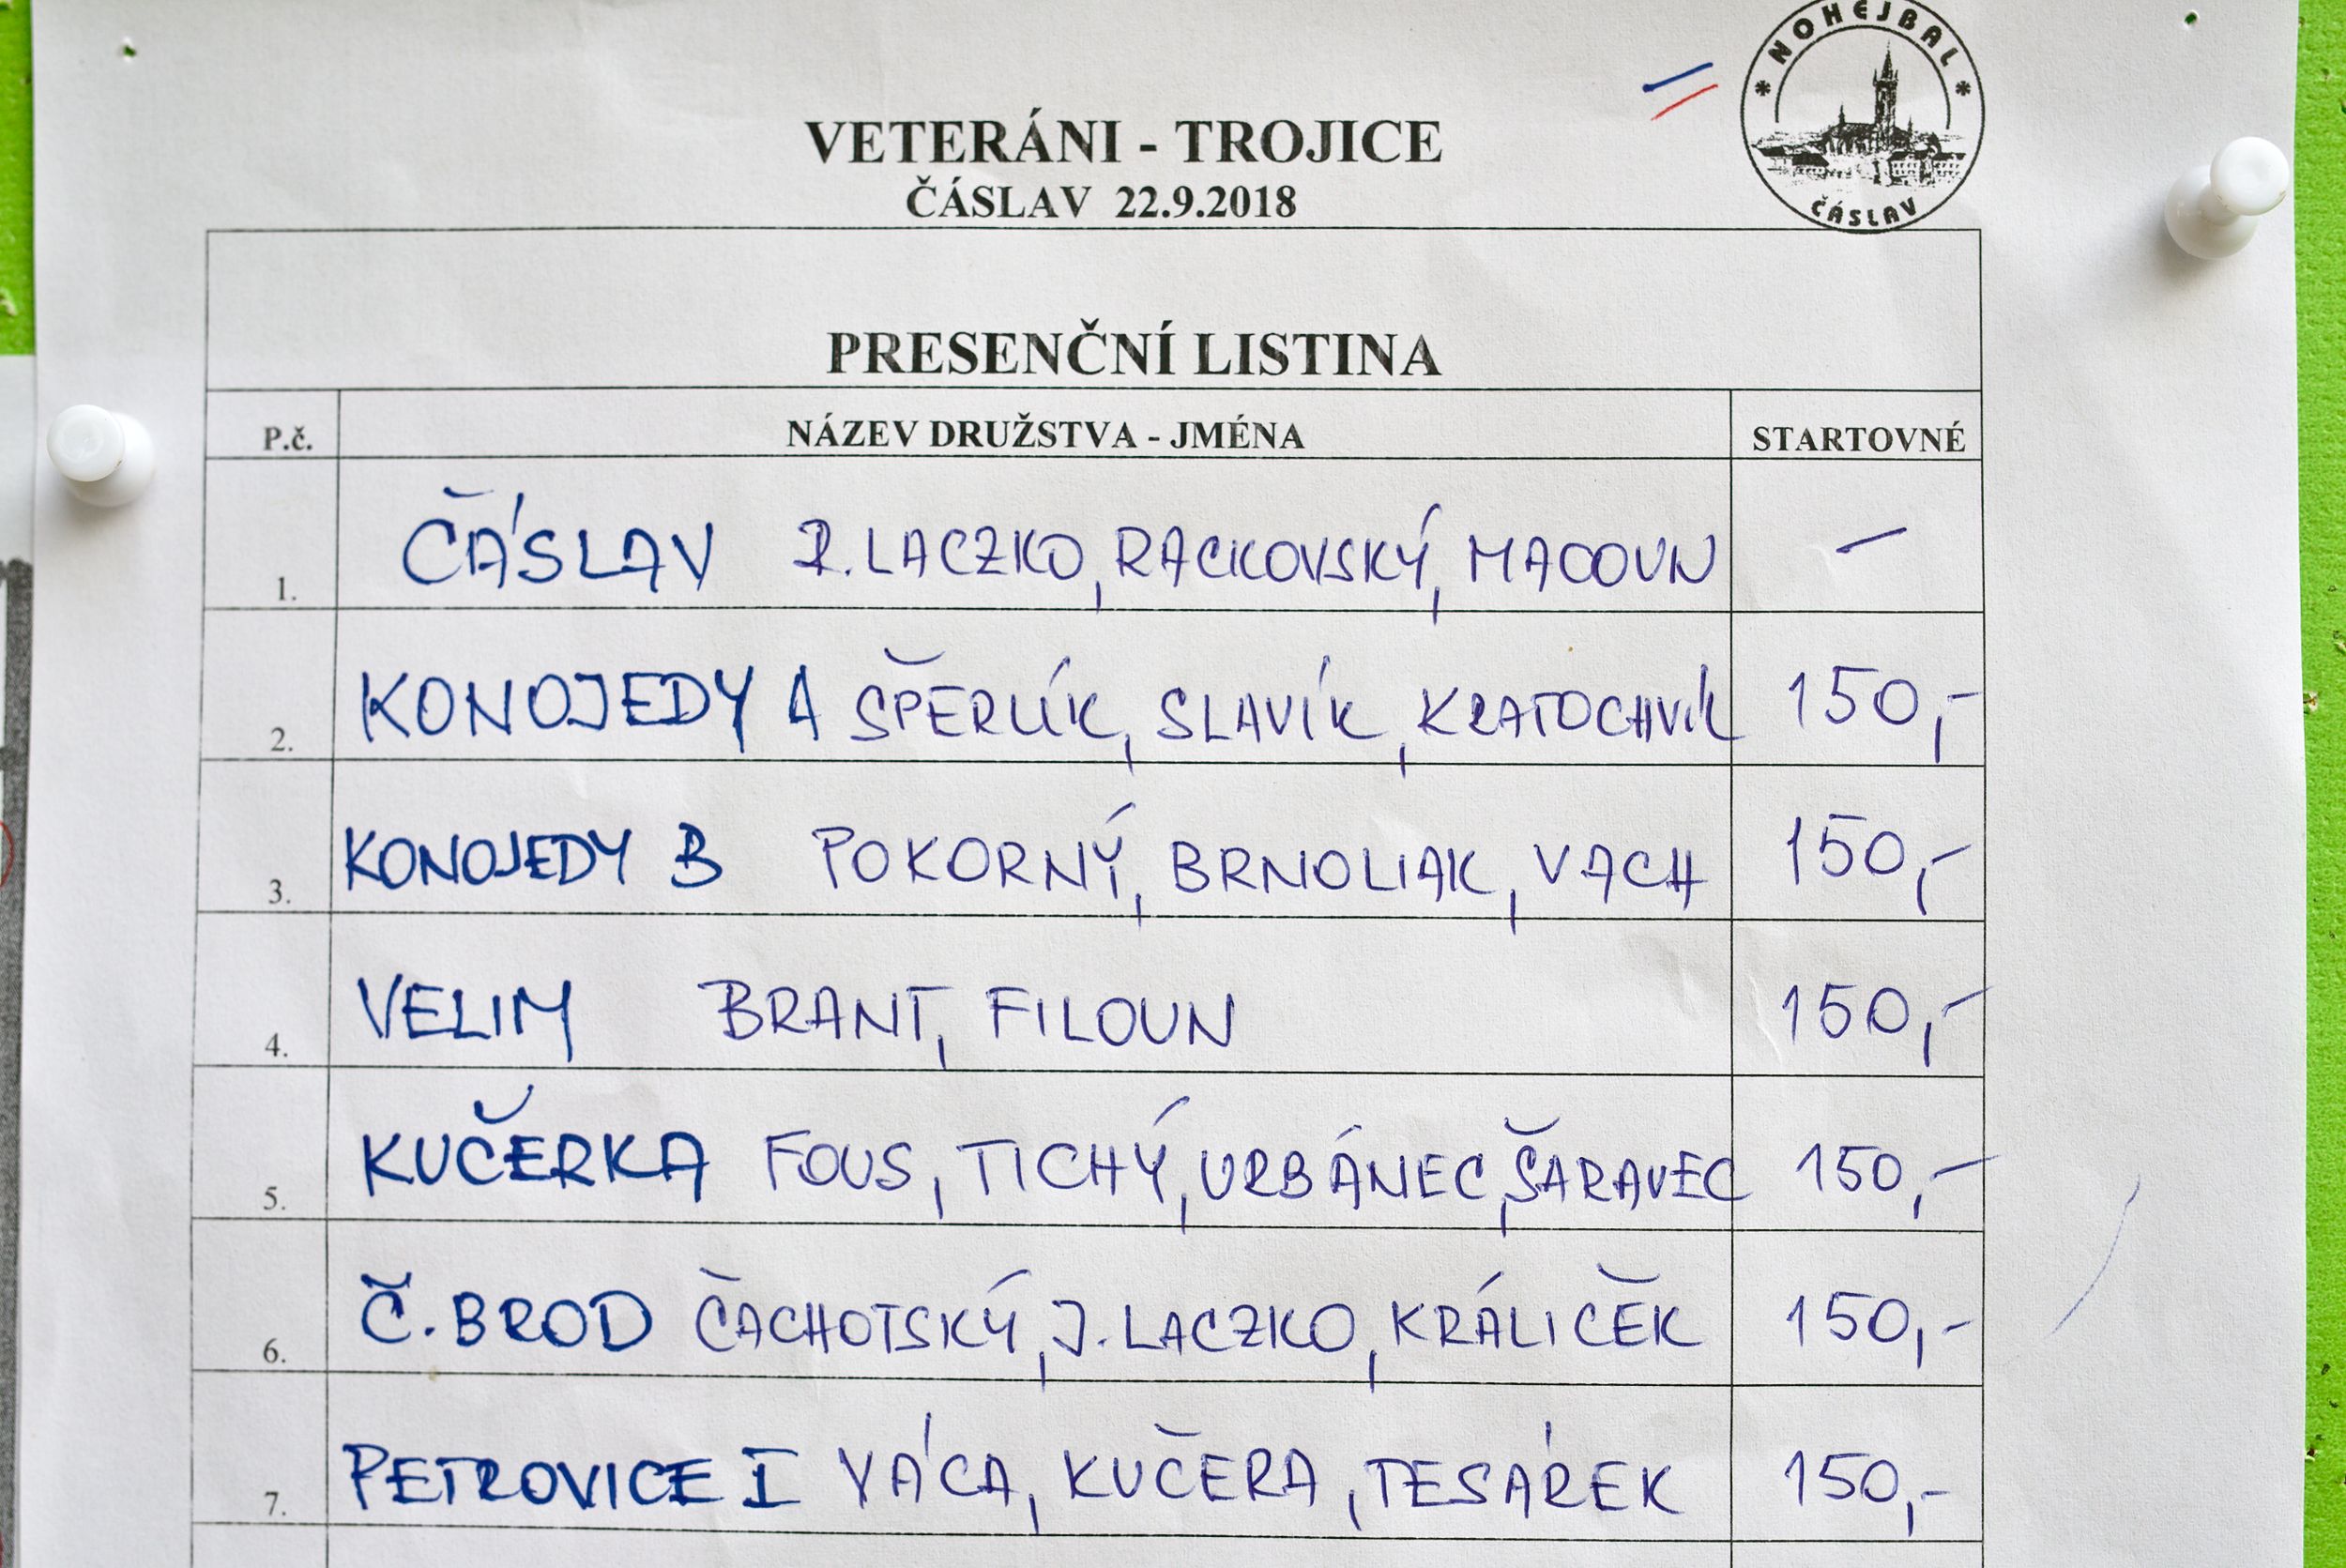 * NOHEJBAL *
ČÁSLAV
VETERÁNI - TROJICE
ČÁSLAV 22.9.2018
PRESENČNÍ LISTINA
P.č. NÁZEV DRUŽSTVA - JMÉNA STARTOVNÉ
1. ČÁSLAV R.LACZKO, RACKOVSKÝ, MACOUN –
2. KONOJEDY A ŠPERLÍK, SLAVÍK, KRATOCHVÍL 150,-
3. KONOJEDY B POKORNÝ, BRNOLIAK, VACH 150,-
4. VELIM BRANT, FILOUN 150,-
5. KUČERKA FOUS, TICHÝ, URBÁNEC, ŠARAVEC 150,-
6. Č.BROD ČACHOTSKÝ, J.LACZKO, KRÁLIČEK 150,-
7. PETROVICE I VÁCA, KUČERA, TESÁREK 150,-